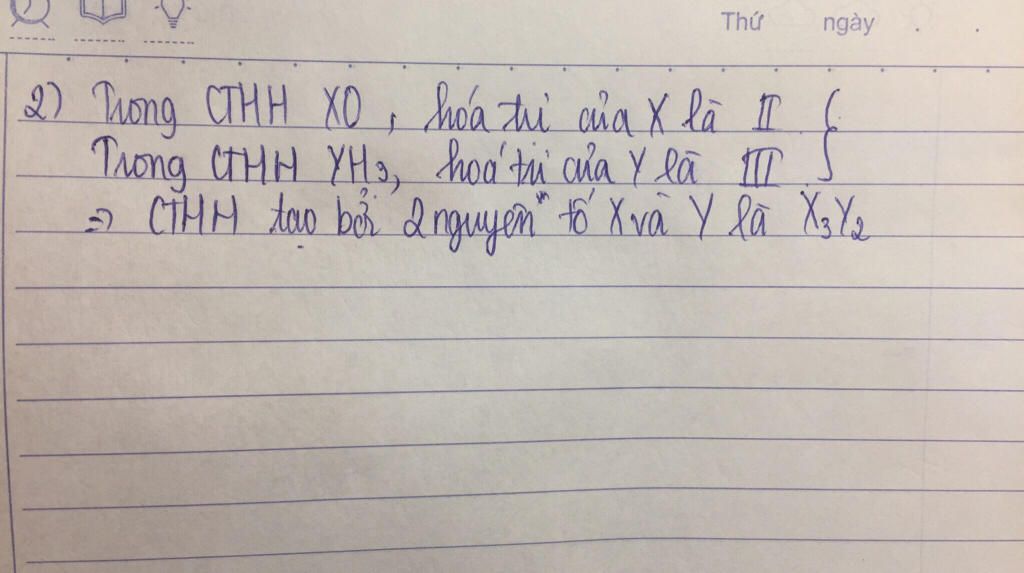 Thứ ngày . .
2) Trong CTHH XO, hóa trị của X là II }
Trong CTHH YH3, hoá trị của Y là III
=> CTHH tạo bởi 2 nguyên tố X và Y là X3Y2